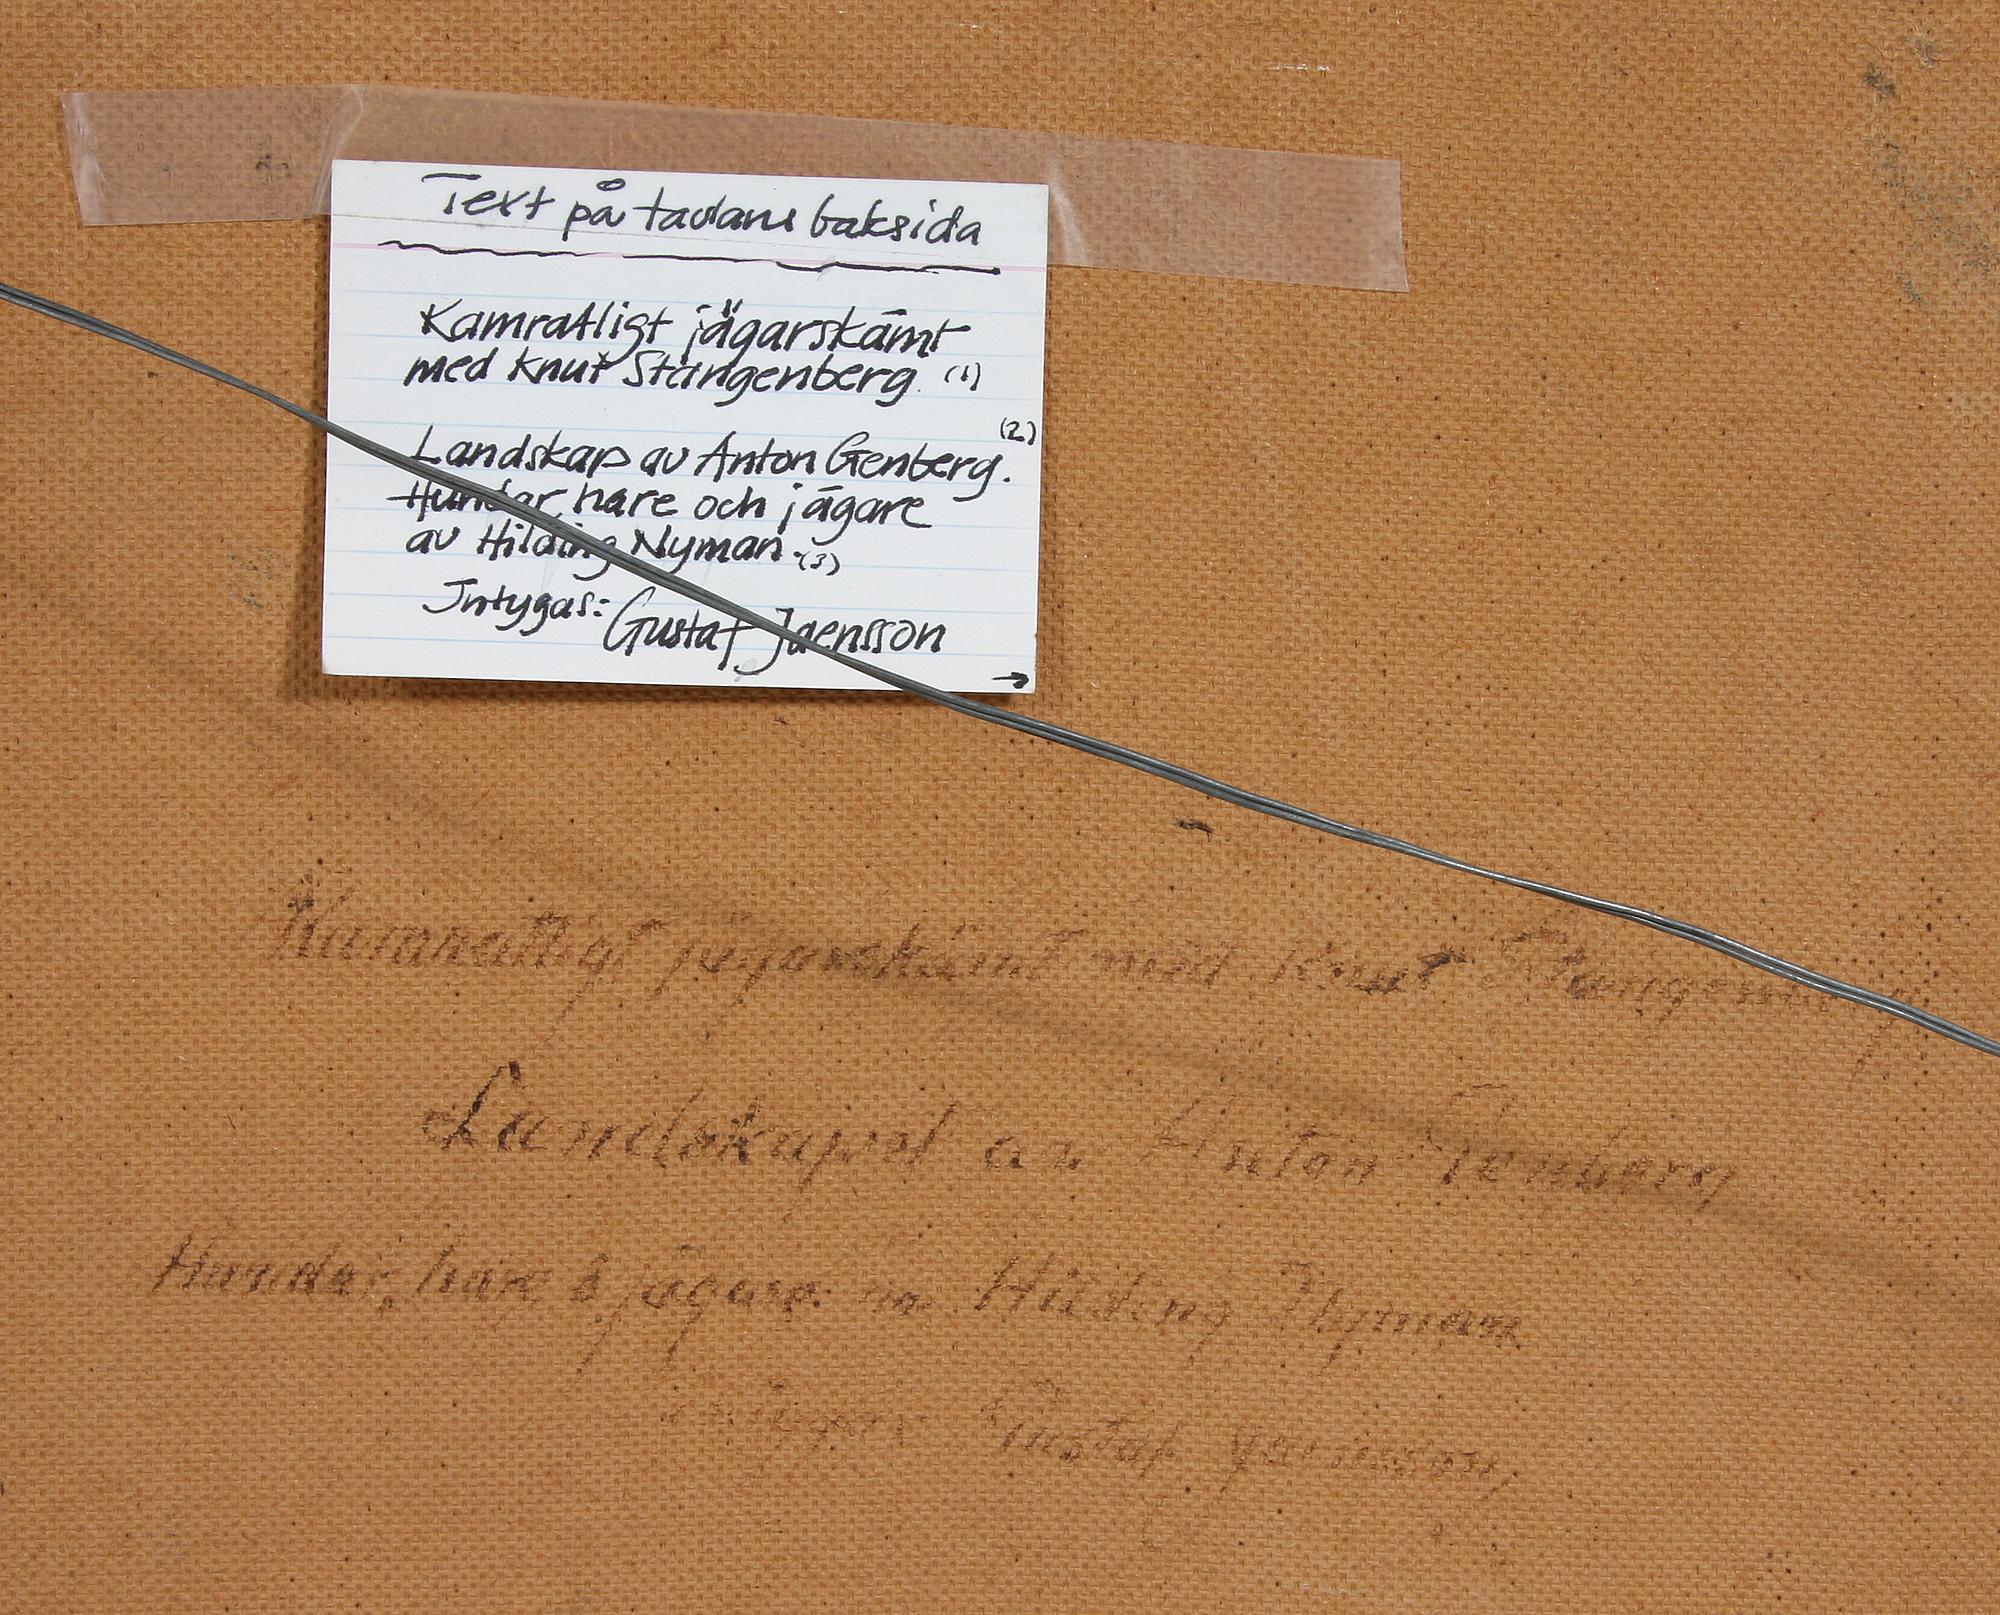 Text på tavlans baksida
Kamratligt jägarskämt
med Knut Stangenberg. (1)
(2)
Landskap av Anton Genberg.
Hundar, hare och jägare
av Hilding Nyman. (3)
Intygas: Gustaf Jaensson
→
Kamratligt jägarskämt med Knut Stangenberg
Landskapet av Anton Genberg
Hundar, hare & jägare av Hilding Nyman
Intygas Gustaf Jaensson